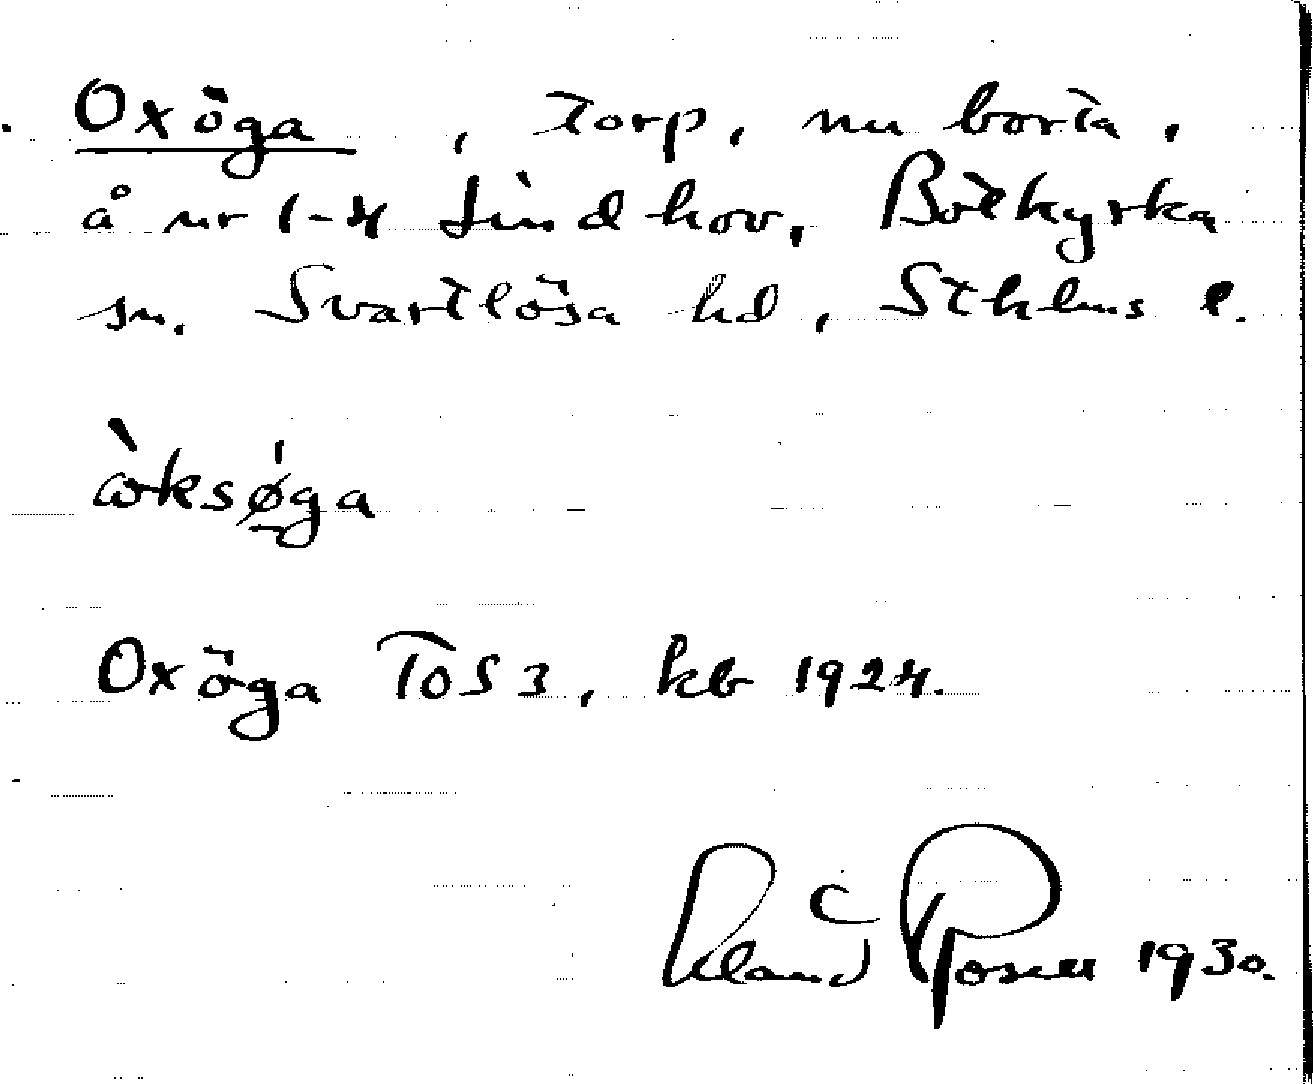 Oxöga, torp, nu borta,
å nr 1-4 Lindhov, Botkyrka
sn. Svartlösa hd, Sthlms l.
Oxöga ToS 3, kb 1924.
1930.